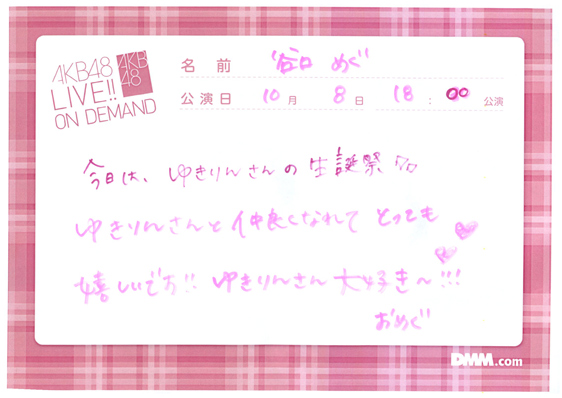 AKB48
LIVE!!
ON DEMAND
AKB
48
名前 谷口 めぐ
公演日 10月 8日 18:00 公演
今日は、ゆきりんさんの生誕祭
ゆきりんさんと仲良くなれて とっても
嬉しいです!! ゆきりんさん大好き〜!!!
おめぐ
DMM.com